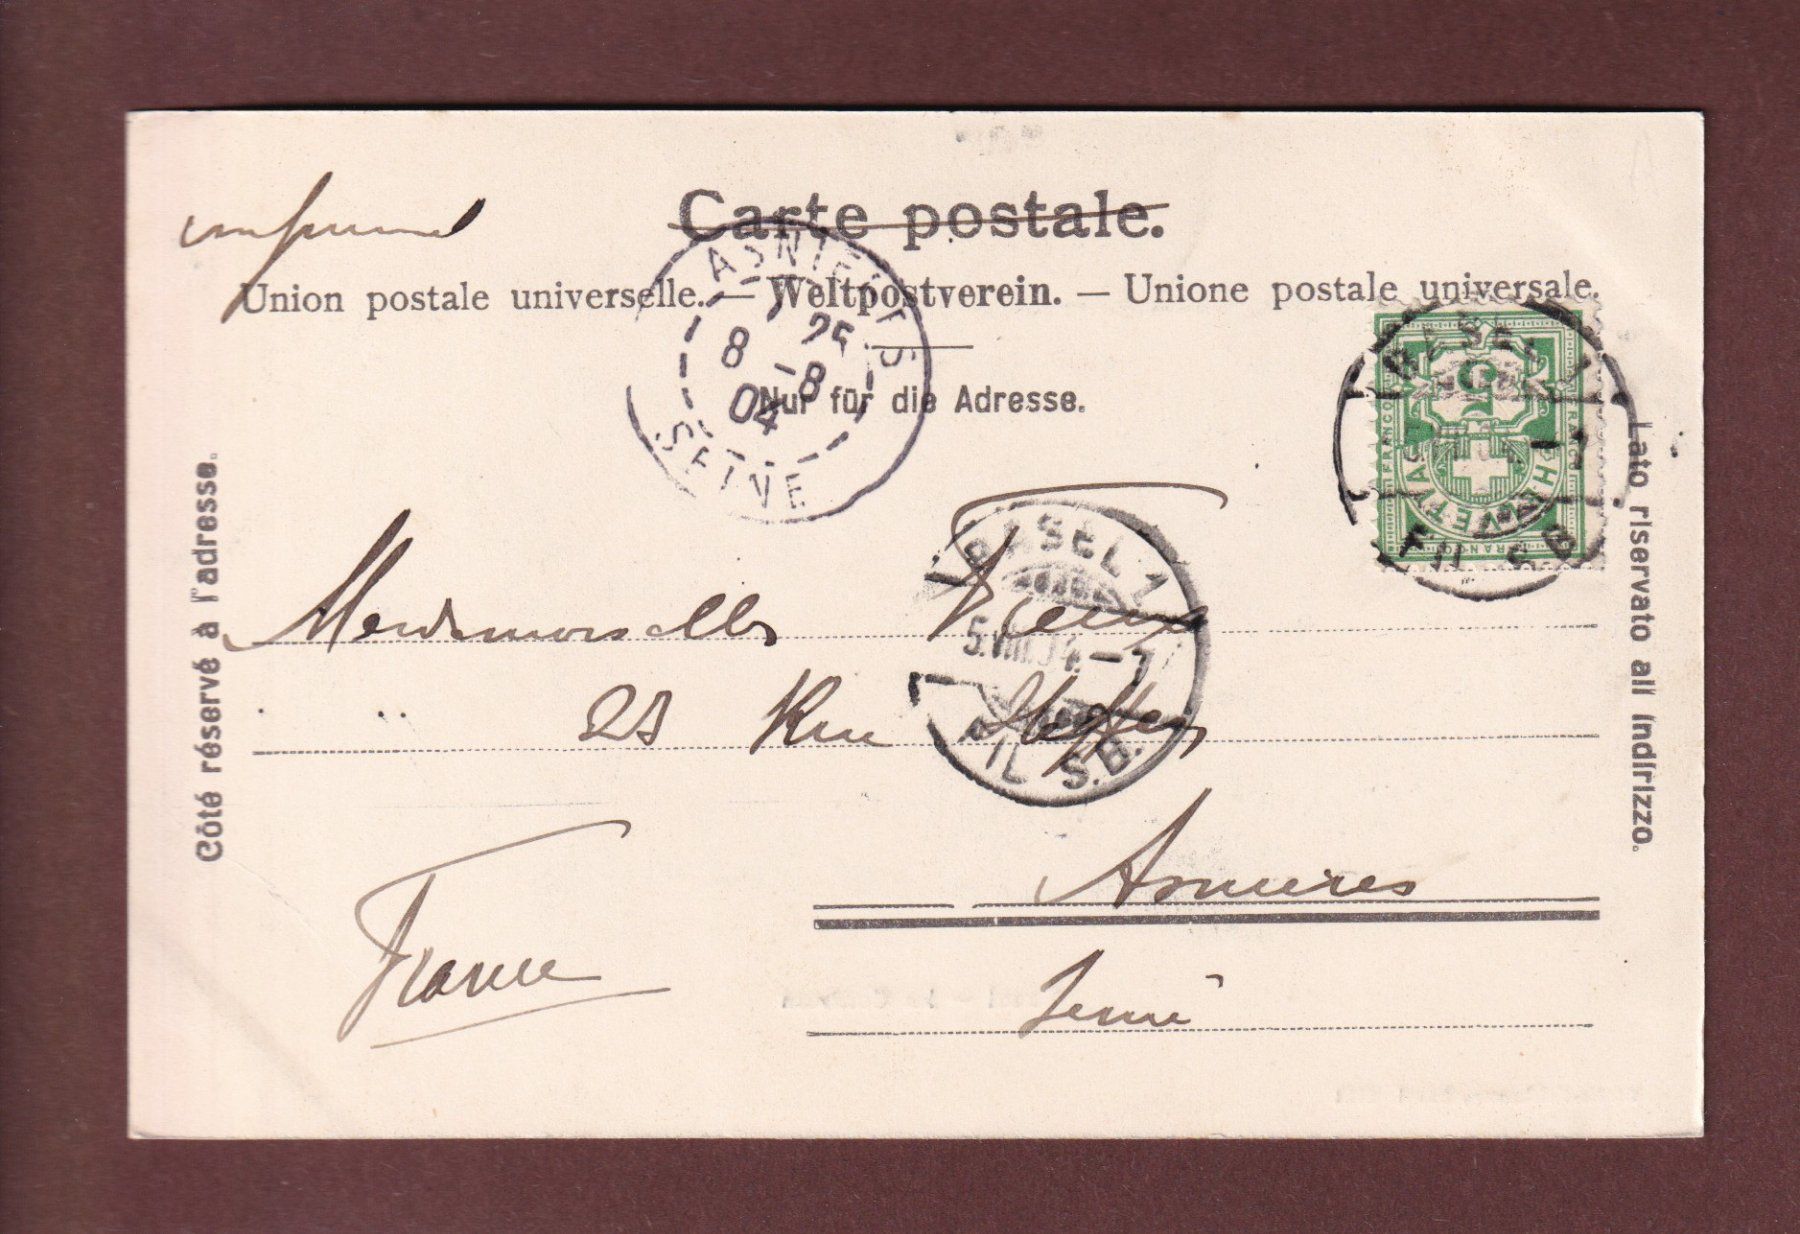 Carte postale.
imprimé
Union postale universelle. — Weltpostverein. — Unione postale universale.
Nur für die Adresse.
Côté réservé à l'adresse.
Lato riservato all' indirizzo.
ASNIERES
7 25
8 -8
04
SEINE
5
FRANCO
HELVETIA
BASEL 1
FIL S.B.
BASEL 1
5.VIII.04.-7
FIL S.B.
Mademoiselle
Rue
Asnieres
Seine
France